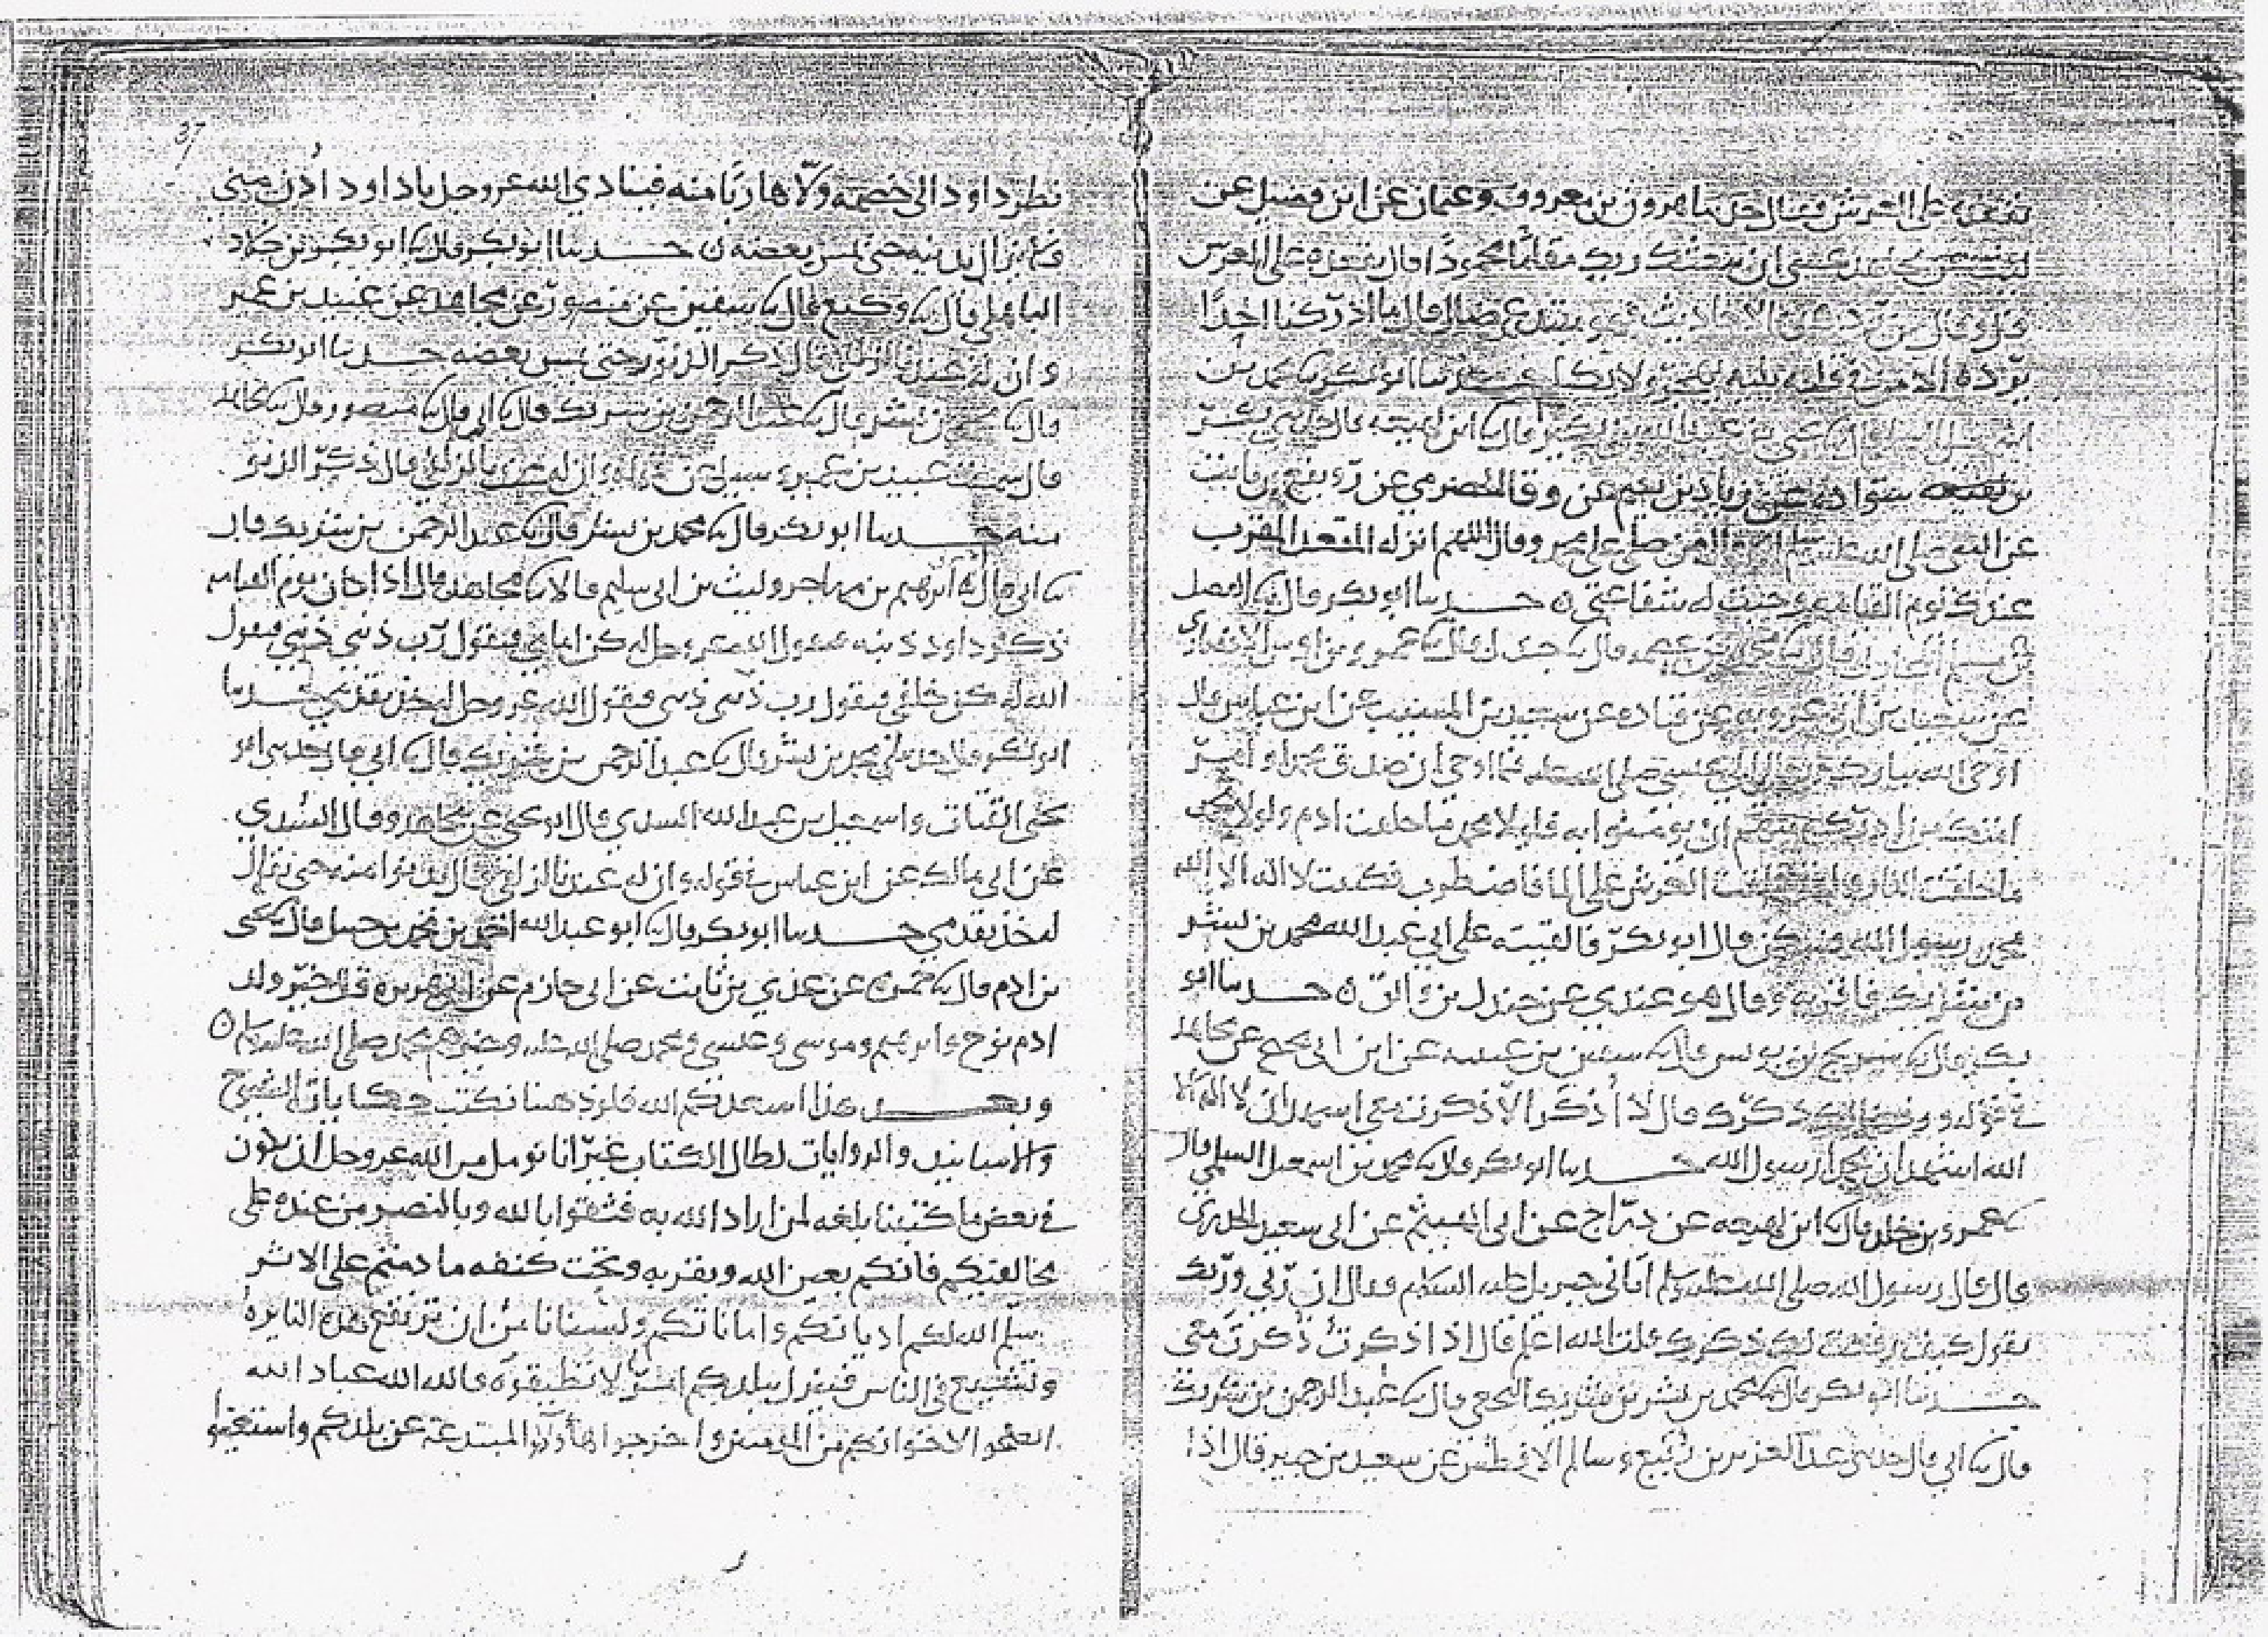 يقعده على العرش فقال حدثنا هرون بن معروف وعثمان عن ابن فضيل عن
ليث عن مجاهد عسى ان يبعثك ربك مقاما محمودا قال يقعده على العرش
وقال من رد هذه الاحاديث فهو مبتدع ضال وقال ما ادركنا احدا
يرده الا من في قلبه بلية يهجر ولا يكلم حدثنا ابو بكر ثنا محمد بن
قال ثنا يحيى بن عبد الله بن بكير قال ثنا ابن لهيعة قال بكر
بن سوادة عن زياد بن نعيم عن وفا الحضرمي عن رويفع بن ثابت
عن النبي صلى الله عليه وسلم انه قال من صلى على محمد وقال اللهم انزله المقعد المقرب
عندك يوم القيامة وجبت له شفاعتي ن حدثنا ابو بكر قال ثنا الفضل
بن مسلم المحاربي قال ثنا محمد بن عصمة قال ثنا جندل قال ثنا عمرو بن اوس الانصاري
عن سعيد بن ابي عروبة عن قتادة عن سعيد بن المسيب عن ابن عباس قال
اوحى الله تبارك وتعالى الى عيسى صلى الله عليه فيما اوحى ان صدق محمدا وامر
امتك من ادركه منهم ان يومنوا به فلولا محمد ما خلقت ادم ولولا محمد
ما خلقت النار ولقد خلقت العرش على الما فاضطرب فكتبت لا اله الا الله
محمد رسول الله فسكن قال ابو بكر فالقيته على ابي عبد الله محمد بن بشر
بن شريك فاقر به وقال هو عندي عن جندل بن والق ن حدثنا ابو
بكر قال ثنا سريج بن يونس قال ثنا سفين بن عيينة عن ابن ابي نجيح عن مجاهد
في قوله ورفعنا لك ذكرك قال لا أذكر الا ذكرت معي اشهد ان لا اله الا
الله اشهد ان محمدا رسول الله حدثنا ابو بكر قال ثنا محمد بن اسمعيل السلمي قال
ثنا عمرو بن خلد قال ثنا ابن لهيعة عن دراج عن ابي الهيثم عن ابي سعيد الخدري
قال قال رسول الله صلى الله عليه وسلم أتاني جبريل عليه السلام فقال ان ربي وربك
يقول كيف رفعت لك ذكرك قلت الله اعلم قال اذا ذكرت ذكرت معي
حدثنا ابو بكر قال ثنا محمد بن بشر بن شريك النخعي قال ثنا عبد الرحمن بن شريك
قال ثنا ابي قال حدثني عبد العزيز بن رفيع وسالم الافطس عن سعيد بن جبير قال اذا
نظر داود الى خصمه ولا هاربا منه فينادي الله عز وجل يا داود أدن مني
فلم يزل يدنيه حتى لمس بعضه ن حدثنا ابو بكر قال ثنا ابو بكر بن خلاد
الباهلي قال ثنا وكيع قال ثنا سفين عن منصور عن مجاهد عن عبيد بن عمير
وان له عندنا لزلفى قال ذكر الدنو حتى يمس بعضه حدثنا ابو بكر
قال ثنا محمد بن بشر قال ثنا عبد الرحمن بن شريك قال ثنا ابي قال ثنا منصور قال ثنا مجاهد
قال سمعت عبيد بن عمير وسيل عن قوله وان له عندنا لزلفى قال ذكر الدنو
منه حدثنا ابو بكر قال ثنا محمد بن بشر قال ثنا عبد الرحمن بن شريك قال
ثنا ابي قال ثنا ابرهيم بن مهاجر وليث بن ابي سليم قالا ثنا مجاهد قال اذا كان يوم القيامة
ذكر داود ذنبه فيقول الله عز وجل له كن امامي فيقول رب ذنبي ذنبي فيقول
الله له كن خلفي فيقول رب ذنبي ذنبي فيقول الله عز وجل له خذ بقدمي حدثنا
ابو بكر قال حدثني محمد بن بشر قال ثنا عبد الرحمن بن شريك قال ثنا ابي قال حدثنا ابو
يحيى القتات واسمعيل بن عبد الله السدي قال ابو يحيى عن مجاهد وقال السدي
عن ابي مالك عن ابن عباس في قوله وان له عندنا لزلفى قال يدنوا منه حتى يقال
له خذ بقدمي حدثنا ابو بكر قال ثنا ابو عبد الله احمد بن محمد بن حنبل قال ثنا يحيى
بن ادم قال ثنا حمزة عن عدي بن ثابت عن ابي حازم عن ابي هريرة قال خير ولد
ادم نوح وابرهيم وموسى وعيسى ومحمد صلى الله عليه وخيرهم محمد صلى الله عليه وسلم ن
وبعد هذا اسعدكم الله فلو ذهبنا نكتب حكايات الشيوخ
والاسانيد والروايات لطال الكتاب غير انا نومل من الله عز وجل ان يكون
في بعض ما كتبنا بلغه لمن اراد الله به فثقوا بالله وبالنصر من عنده على
مخالفيكم فانكم بعين الله وبقربه وتحت كنفه ما دمتم على الاثر
سلم الله لكم اديانكم واماناتكم ولسنا نامن ان ترتفع هذه النايرة
وتشيع في الناس فينزل ببلدكم امر لا تطيقوه فالله الله عباد الله
انصحوا لاخوانكم من المومنين واخرجوا هاولاء المبتدعة عن بلدكم واستعينوا